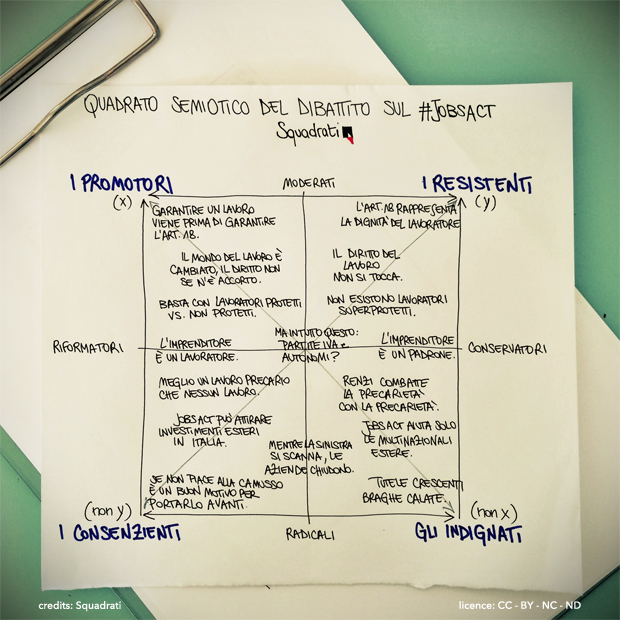 QUADRATO SEMIOTICO DEL DIBATTITO SUL #JOBSACT
Squadrati
I PROMOTORI
MODERATI
I RESISTENTI
(x)
(y)
GARANTIRE UN LAVORO
VIENE PRIMA DI GARANTIRE
L'ART. 18.
L'ART. 18 RAPPRESENTA
LA DIGNITÀ DEL LAVORATORE
IL MONDO DEL LAVORO È
CAMBIATO, IL DIRITTO NON
SE N'È ACCORTO.
IL DIRITO DEL
LAVORO
NON SI TOCCA.
BASTA CON LAVORATORI PROTETTI
VS. NON PROTETTI.
NON ESISTONO LAVORATORI
SUPERPROTETTI.
RIFORMATORI
L'IMPRENDITORE
È UN LAVORATORE.
MA IN TUTTO QUESTO:
PARTITE IVA e
AUTONOMI?
L'IMPRENDITORE
È UN PADRONE.
CONSERVATORI
MEGLIO UN LAVORO PRECARIO
CHE NESSUN LAVORO.
RENZI COMBATTE
LA PRECARIETÀ
CON LA PRECARIETÀ.
JOBS ACT PUÒ ATTIRARE
INVESTIMENTI ESTERI
IN ITALIA.
JOBS ACT AIUTA SOLO
LE MULTINAZIONALI
ESTERE.
MENTRE LA SINISTRA
SI SCANNA, LE
AZIENDE CHIUDONO.
SE NON PIACE ALLA CAMUSSO
È UN BUON MOTIVO PER
PORTARLO AVANTI.
TUTELE CRESCENTI
BRAGHE CALATE.
(non y)
(non x)
I CONSENZIENTI
RADICALI
GLI INDIGNATI
credits: Squadrati
licence: CC - BY - NC - ND